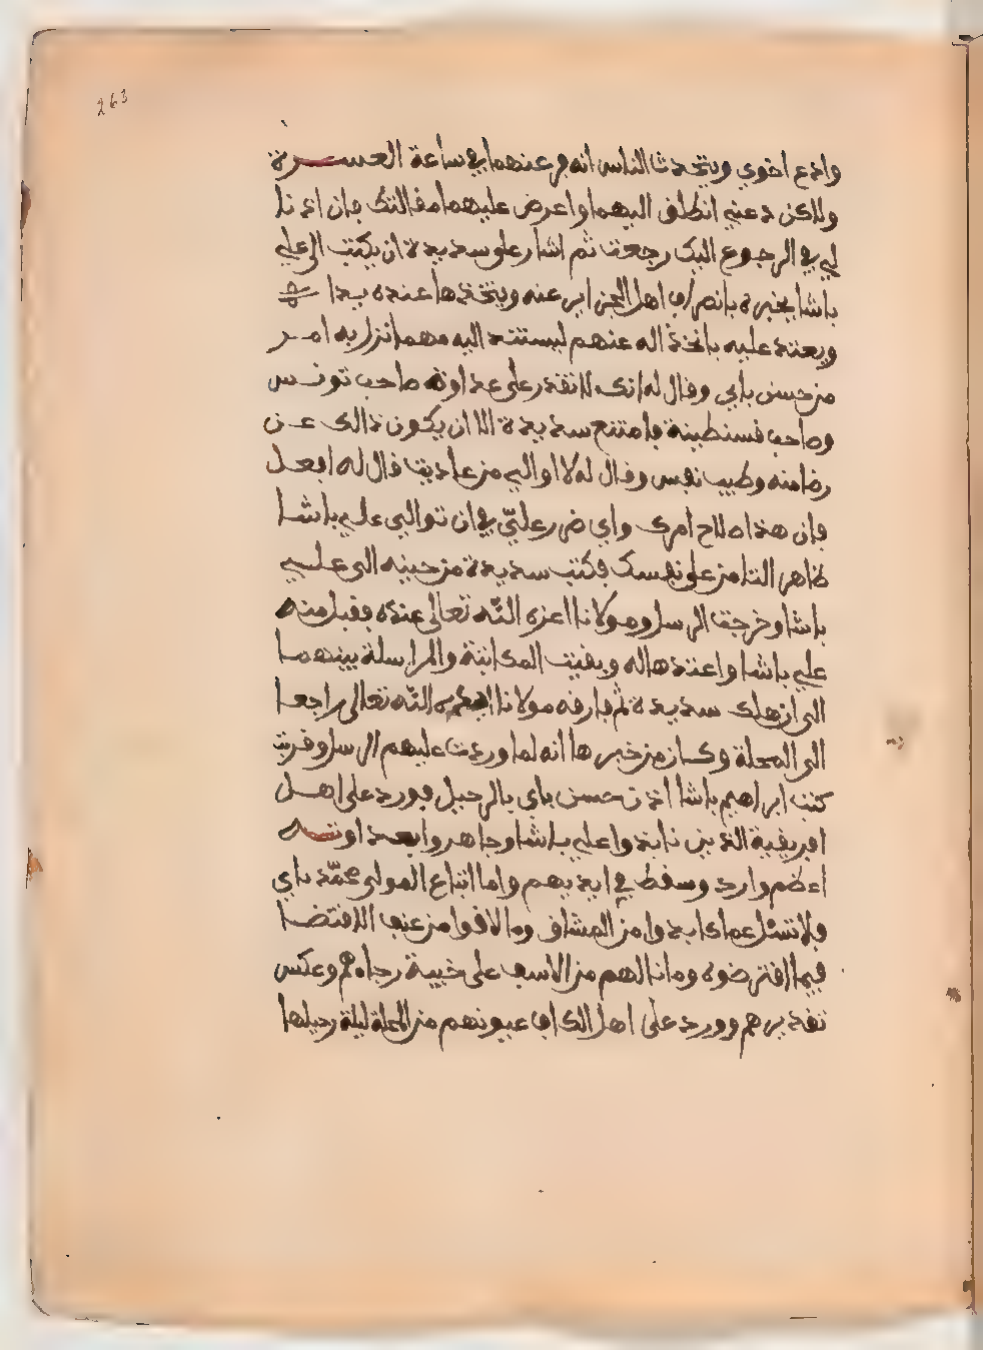 263
وادع اخوي ويتحدث الناس انه فر عنهما في ساعة العسرة
ولاكن دعني انطلق اليهما واعرض عليهما مقالتك فان اذنا
لي في الرجوع اليك رجعت ثم اشار على سديدة ان يكتب الى علي
باشا يخبره بانصراف اهل عنه ويتخذها عنده يدا
ويعتد عليه باتخذاله عنهم ليستند اليه مهما نزل به امر
من حسن باي وقال له انك لا تقدر على عداوة صاحب تونس
وصاحب قسنطينة فامتنع سديدة الا ان يكون ذالك عن
رضا منه وطيب نفس وقال له لا اوالي من عاديت قال له افعل
فان هذا صلاح امرك واي ضرر عليّ في ان توالي علي باشا
ظاهرا لتامن على نفسك فكتب سديدة من حينه الى علي
باشا وخرجت الرسل ومولانا اعزه الله تعالى عنده فقبل منه
علي باشا واعتدها له وبقيت المكاتبة والمراسلة بينهما
الى ان هلك سديدة ثم فارقه مولانا الله تعالى راجعا
الى المحلة وكان من خبرها انه لما وردت عليهم الرسل وقريت
كتب ابراهيم باشا اذن حسن باي بالرحيل فورد على اهل
افريقية الذين نابذوا علي باشا وجاهروا بعداوته
اعظم وارد وسقط في ايديهم واما اتباع المولى محمّد باي
فلا تسئل عما كابدوا من المشاق وما لاقوا من غب الاقتضا
فيما اقترضوه وما نالهم من الاسف على خيبة رجاهم وعكس
تقديرهم وورد على اهل الكاف عيونهم من المحلة ليلة رحيلها